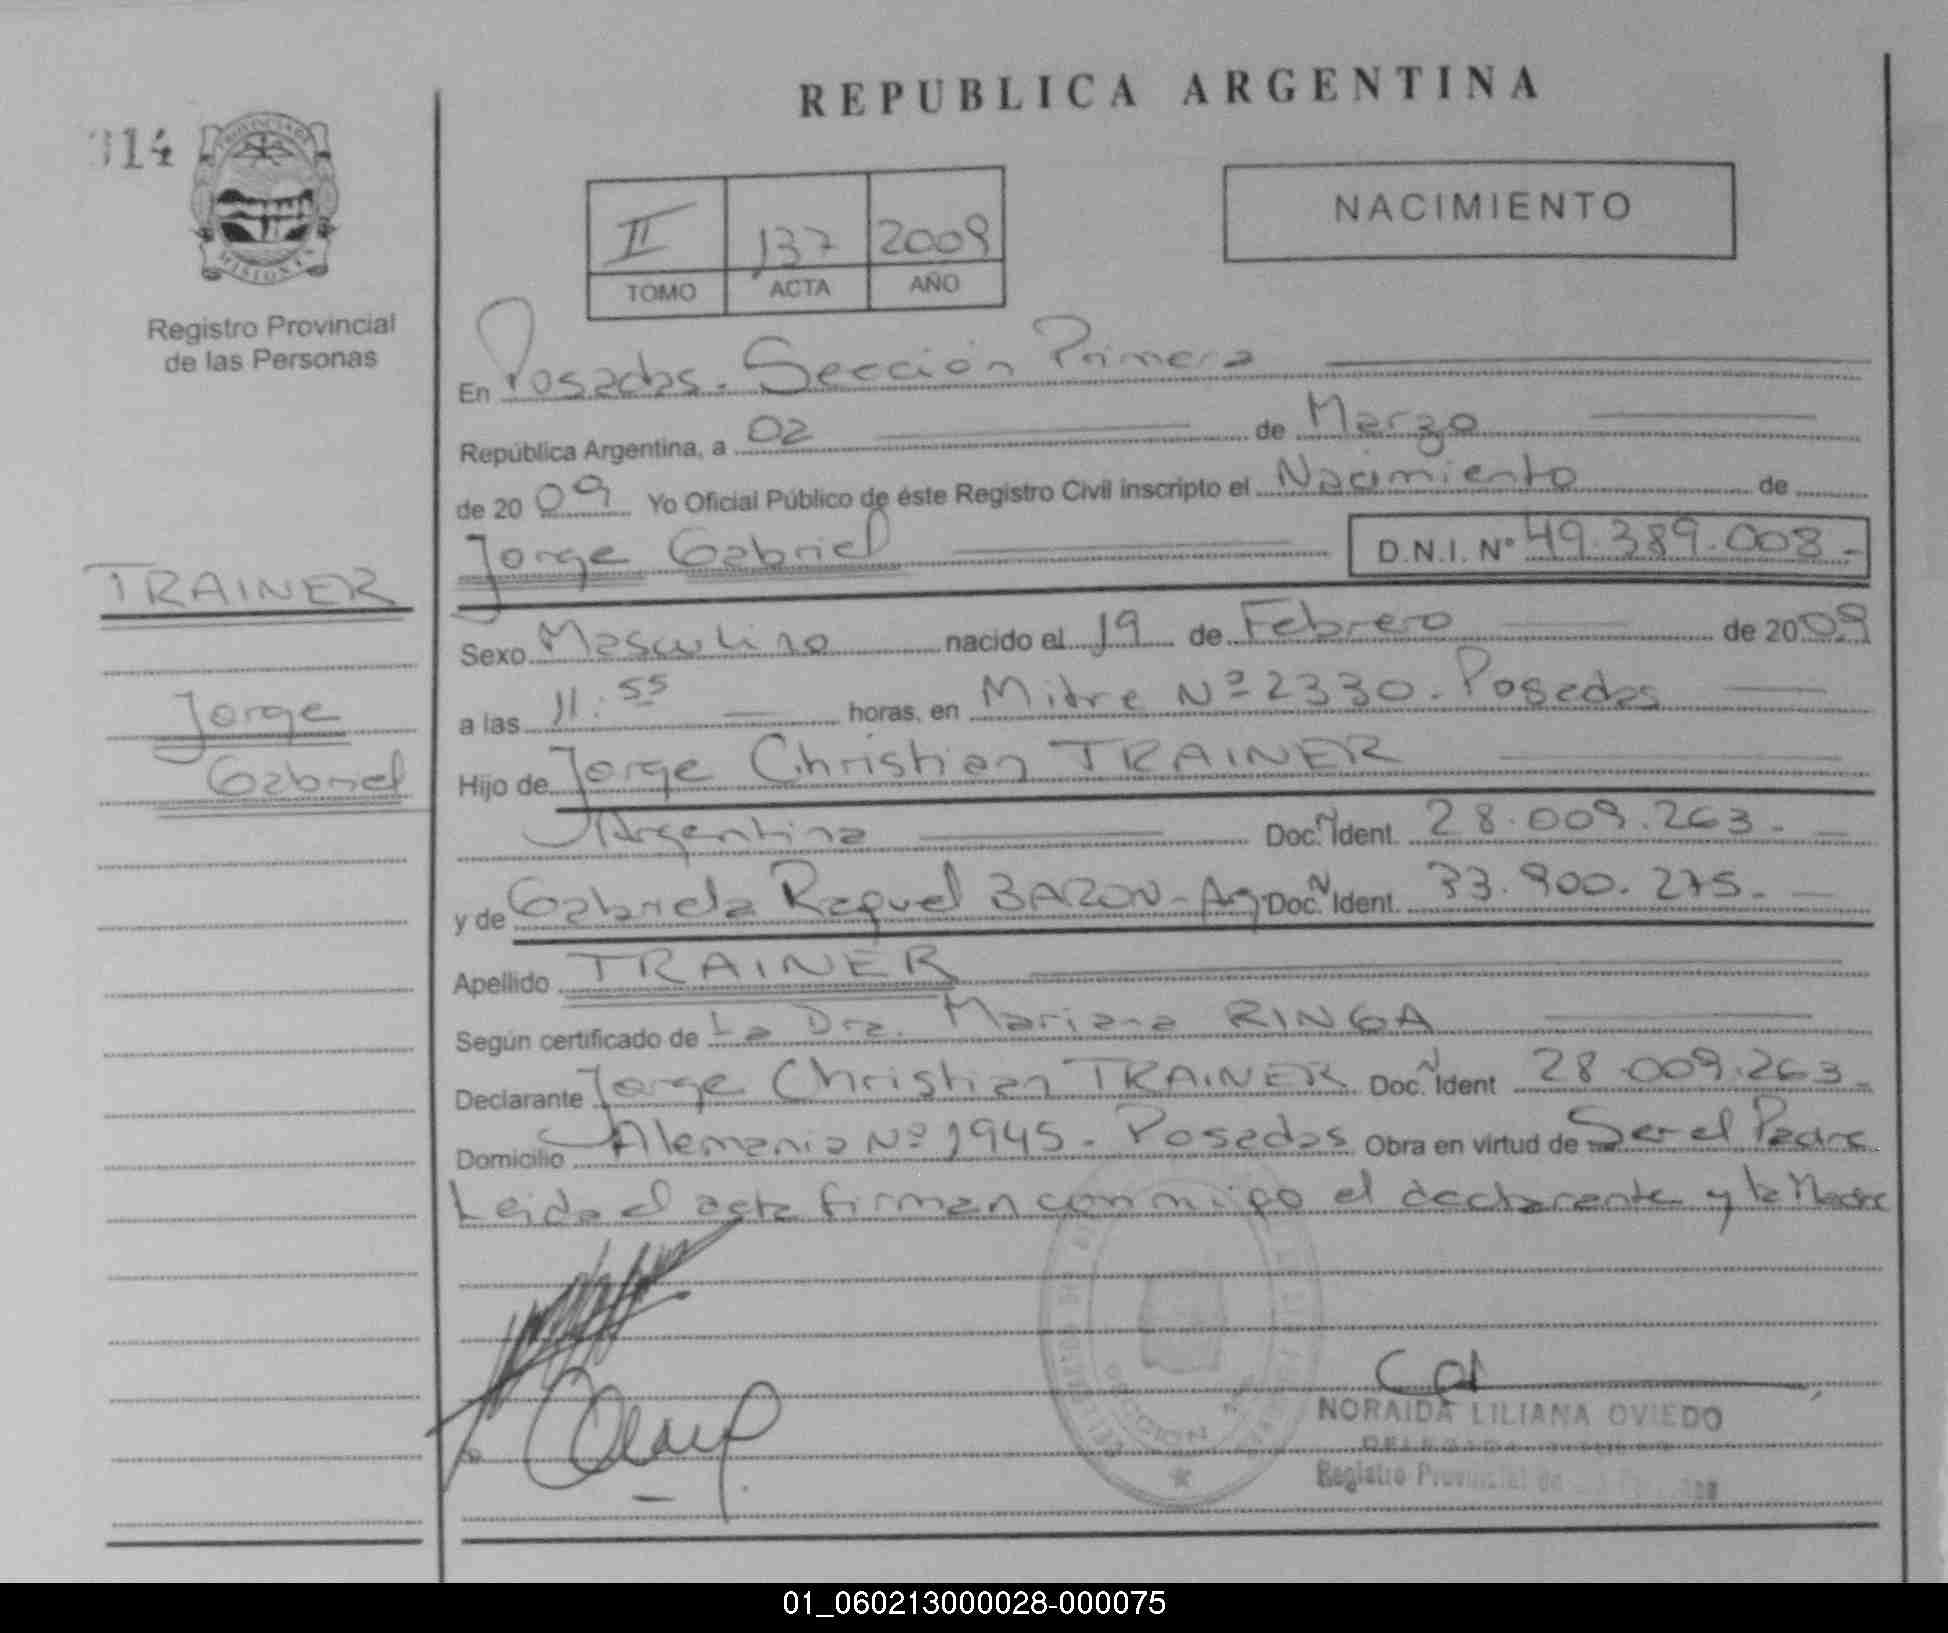 REPUBLICA ARGENTINA
314
PROVINCIA DE
MISIONES
Registro Provincial
de las Personas
NACIMIENTO
II 137 2009
TOMO ACTA AÑO
En Posadas. Sección Primera
República Argentina, a 02 de Marzo
de 2009 Yo Oficial Público de éste Registro Civil inscripto el Nacimiento de
Jorge Gabriel D.N.I. Nº 49.389.008.-
TRAINER
Jorge
Gabriel
Sexo Masculino nacido el 19 de Febrero de 2009
a las 11:55 horas, en Mitre Nº 2330. Posadas
Hijo de Jorge Christian TRAINER
Argentina Doc. N Ident. 28.009.263.-
y de Gabriela Raquel BAZON - Ag Doc. N Ident. 33.900.275.-
Apellido TRAINER
Según certificado de La Dra. Mariana RINGA
Declarante Jorge Christian TRAINER Doc. N Ident 28.009.263.-
Domicilio Alemania Nº 1945. Posadas Obra en virtud de Ser el Padre
Leida el acta firman conmigo el declarante y la Madre
NORAIDA LILIANA OVIEDO
Registro Provincial de
SECCION
01_060213000028-000075